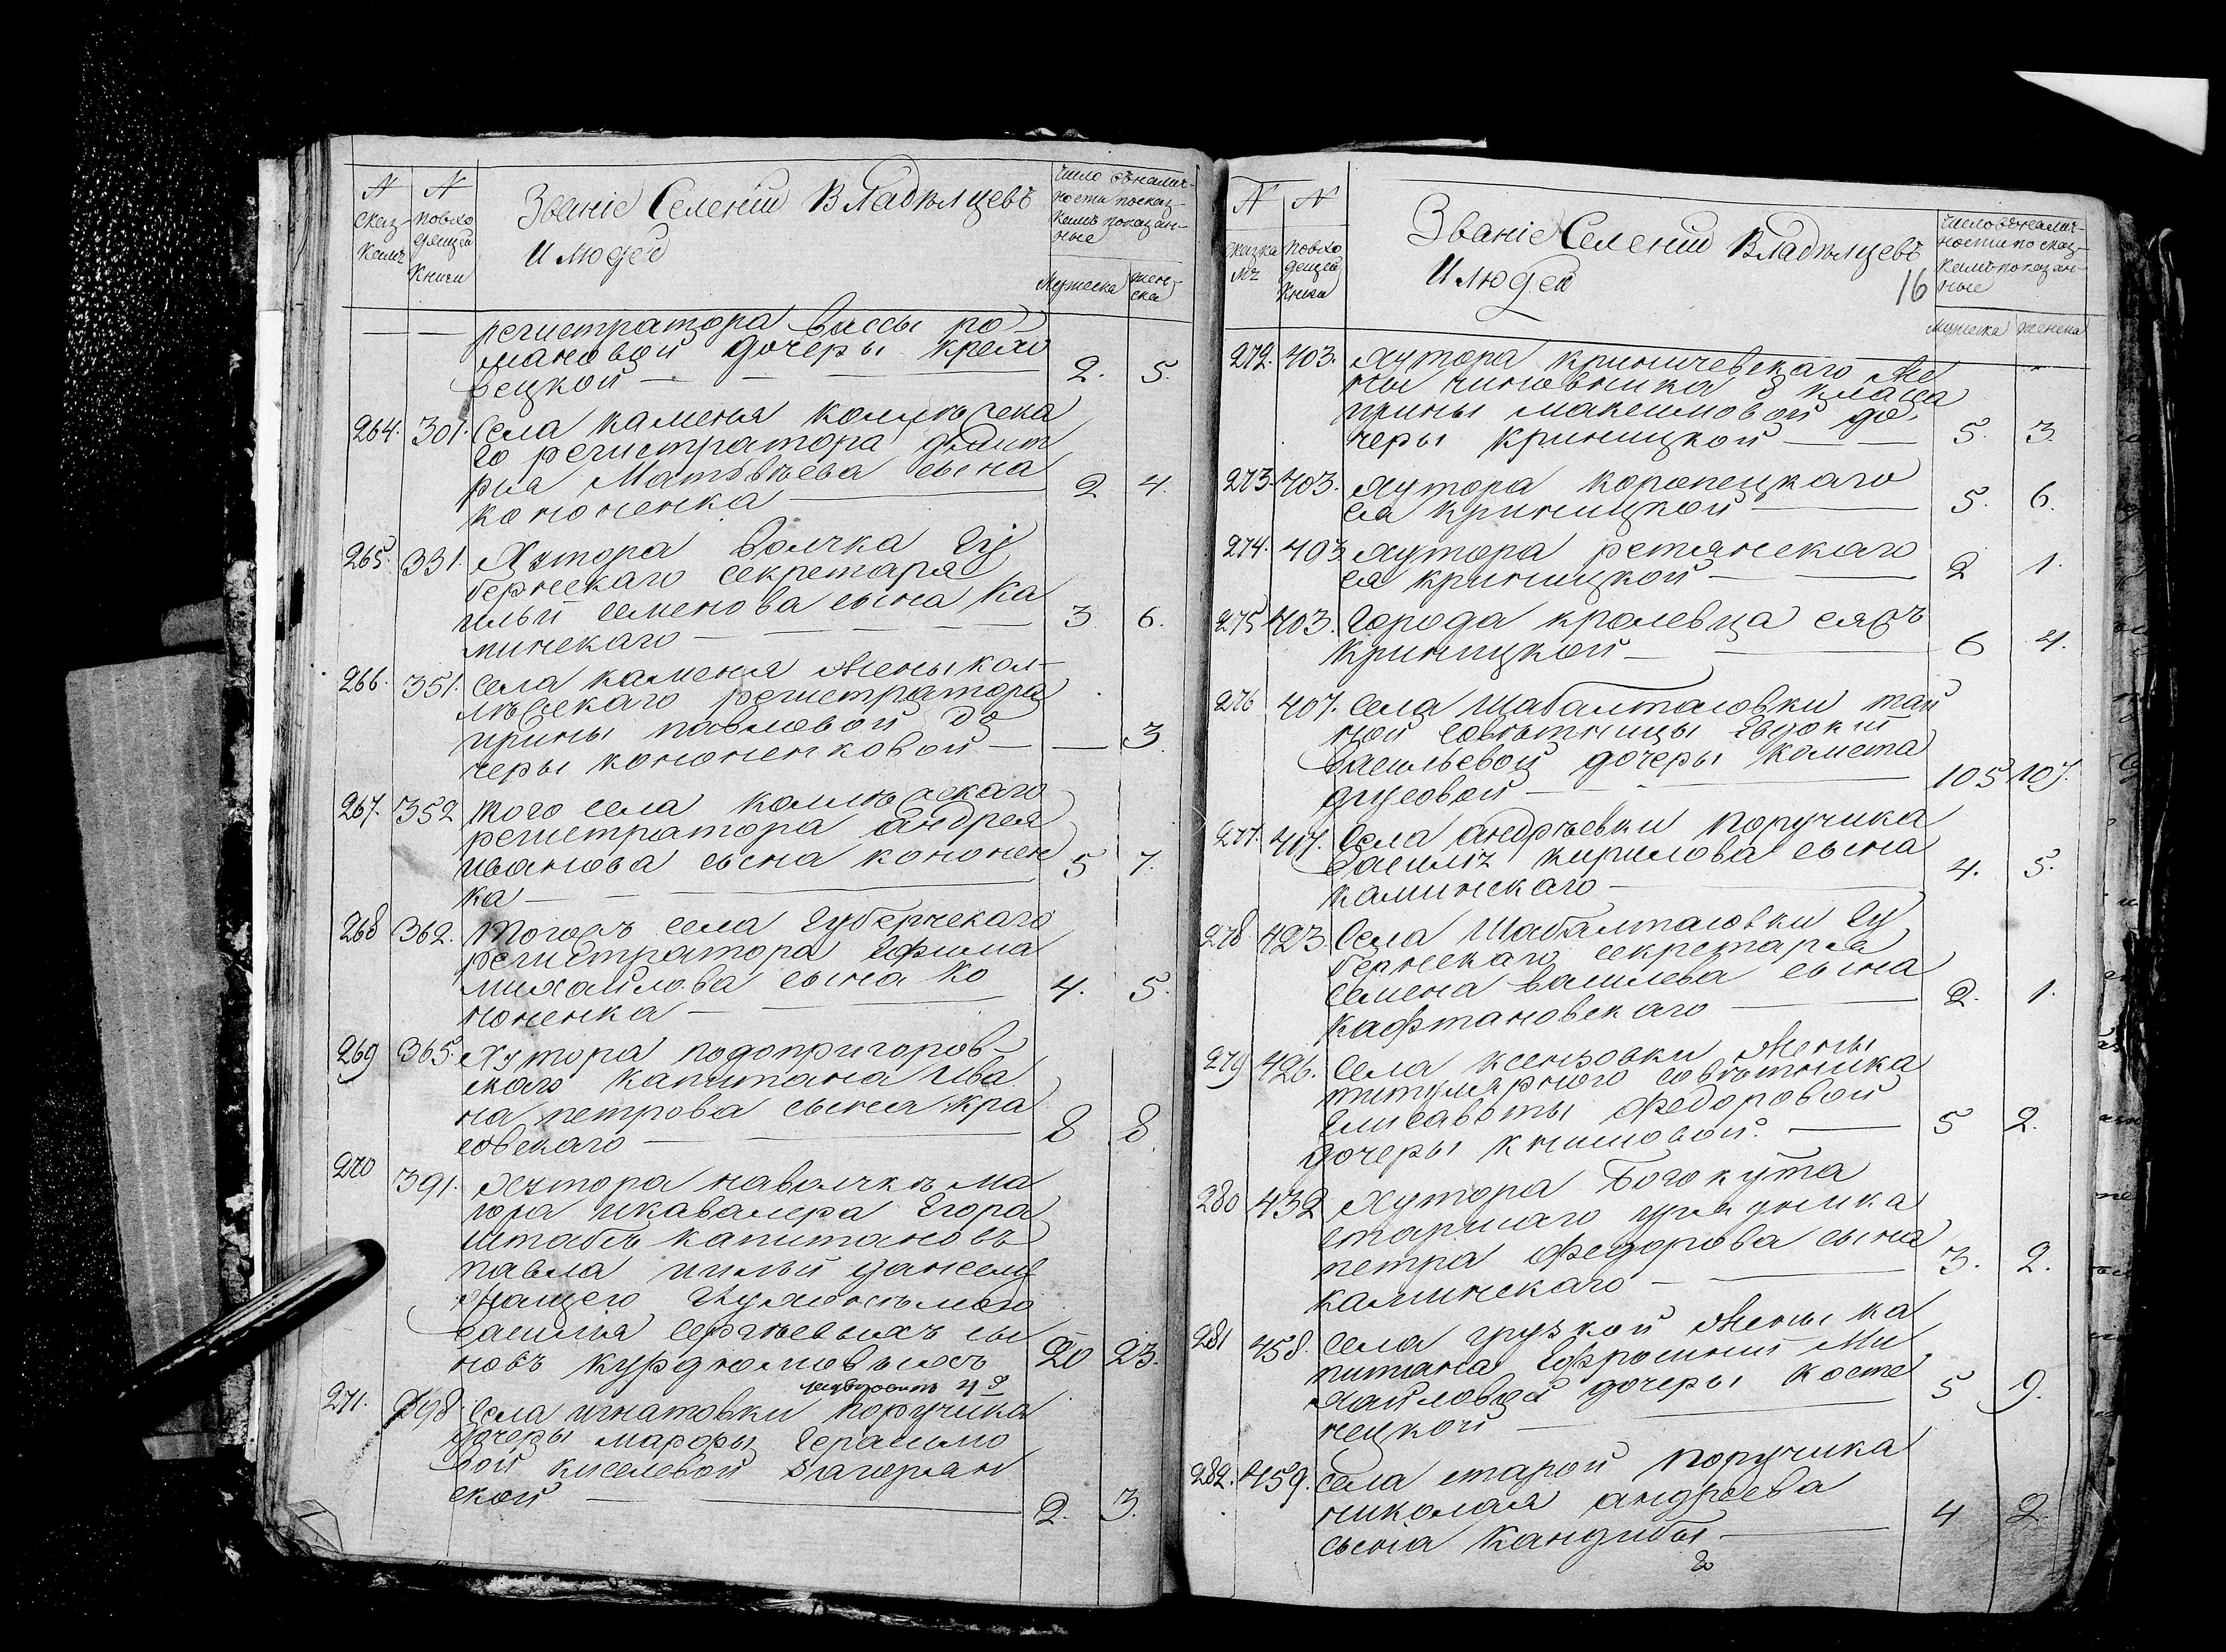 N N Званіе Селеній Владѣлцевъ Число въналич-
сказ- повхо ности посказ-
камъ дящей И людей камъ показан-
Книги ные
Мужеска жен-
ска
— — регистратора Вассы ро-
мановой дочеры
рецкой — 2. 5.
264. 301. Села каменя коллѣжска
го регистратора Дмит
рия Матвѣева сына
кононенка — 2 4.
265. 331. Хутора Волчка Гу
бернскаго секретаря
ильи семенова сына Ка
минскаго — 3 6.
266. 351. Села каменя Жены кол-
лѣжскаго регистратора
ирины павловой до
черы кононенковой — — 3
267. 352 того села коллѣжскаго
регистратора андрея
иванова сына кононен
ка — 5 7.
268 362. Тогожъ села Губернскаго
регистратора Ефима
михайлова сына ко
ноненка — 4. 5.
269 365. Хутора подопригоров-
скаго Капитана Ива
на петрова сына кра
совскаго — 8 8
270 391. Хутора наволчкѣ ма
іора икавалера Егора
штабсъ капитановъ
павла ильи
василия Сергѣевыхъ сы
новъ курдюмовыхъ 20 23.
271. 398. Села игнатовки поручика
дочеры марфы Герасимо
вой киселевой
ской — 2. 3.
N N Званіе Селеній Владѣлцевъ Число вналич-
сказка повхо ности по сказ-
мъ дящей И людей камъ показан-
Книги 16 ные
Мужеска женска
272. 403. Хутора криничевскаго Же
ны чиновника 8 класса
ирины максимовой до-
черы криницкой — 5. 3.
273. 403. Хутора коропецкаго
ея криницкой — 5. 6.
274. 403 Хутора ретянскаго
ея криницкой — 2 1.
275 403. Города кролевца еяжъ
криницкой — 6 4.
276 407. Села Шабалтасовки тай
ной совѣтницы Евдокіи
Васильевой дочеры
— 105 107.
277. 417. Села андрѣевки поручика
Василія кирилова сына
каминскаго — 4. 5.
278 423. Села Шабалтасовки Гу
бернскаго секретаря
семена василева сына
кафтановскаго — 2. 1.
279 426. Села ксензовки Жены
титулярного совѣтника
Елисаветы Федоровой
дочеры книшовой. — 5 2.
280 432 Хутора Богокута
старшаго урядника
петра Федорова сына
каминскаго — 3. 2.
281 458. Села грузкой Жены ка
питана Ефросиніи Ми
хайловой дочеры косте
нецкой — 5 9.
282. 459. села старой поручика
николая андреева
сына Кандибы — 4 2.